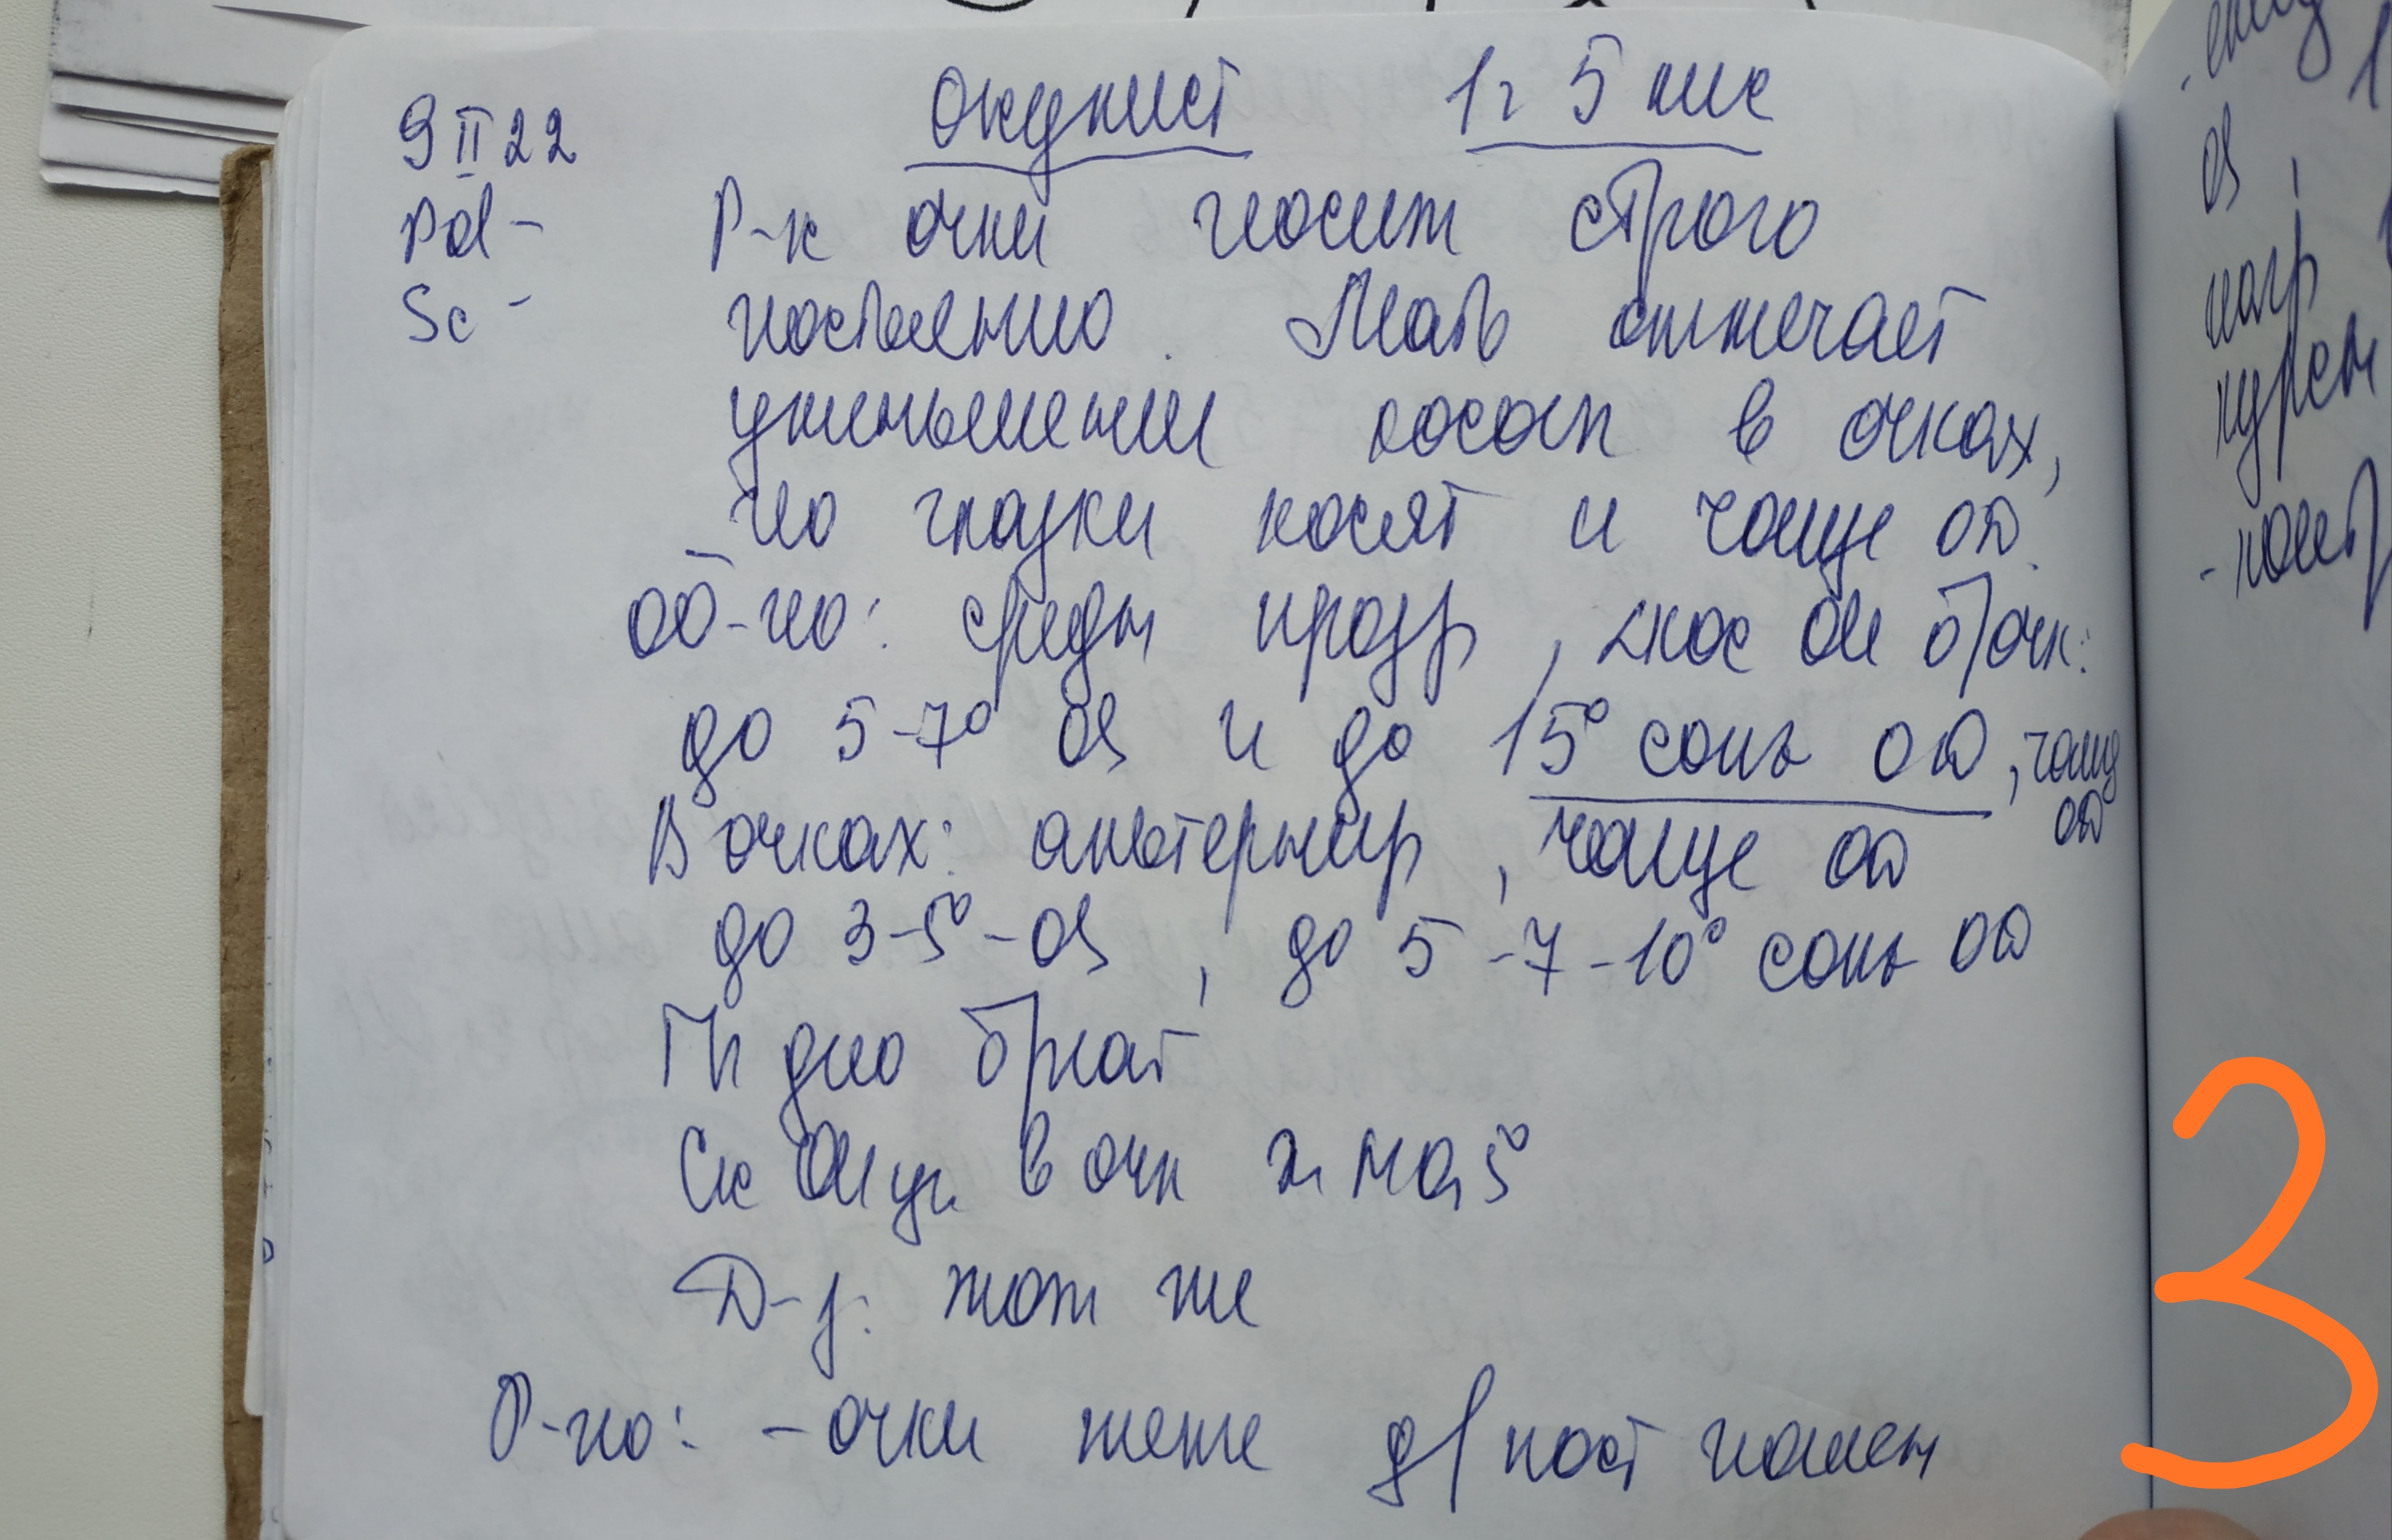 9 II 22 Окулист 1г 5 мес
Pd - Р-к очки носит строго
Sc - постоянно. Мать отмечает
уменьшение косогл в очках,
но глазки косят и чаще OD.
Об-но: среды прозр, <кос ои б/очк:
до 5-7° OS и до 15° сонь OD, чаще
OD
В очках: альтернир, чаще OD
до 3-5° - OS, до 5-7-10° сонь OD
Гл дно б/пат
Ск в очк на 5°
D-з: тот же
Р-но: - очки теже д/пост ношен
3
OS